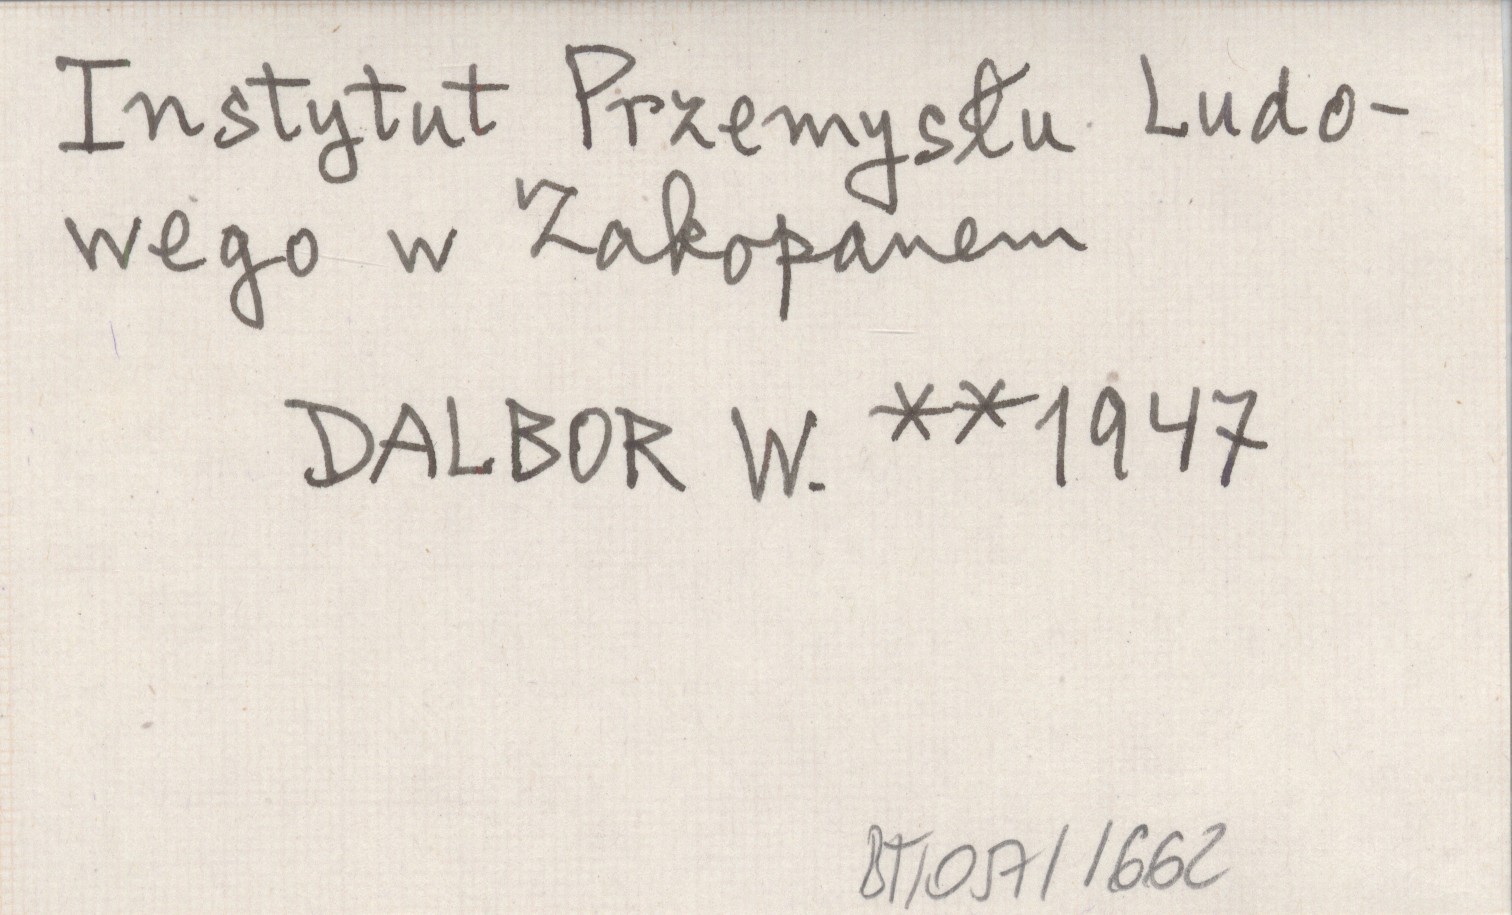 Instytut Przemysłu Ludo-
wego w Zakopanem
DALBOR W. **1947
BT/057/1662